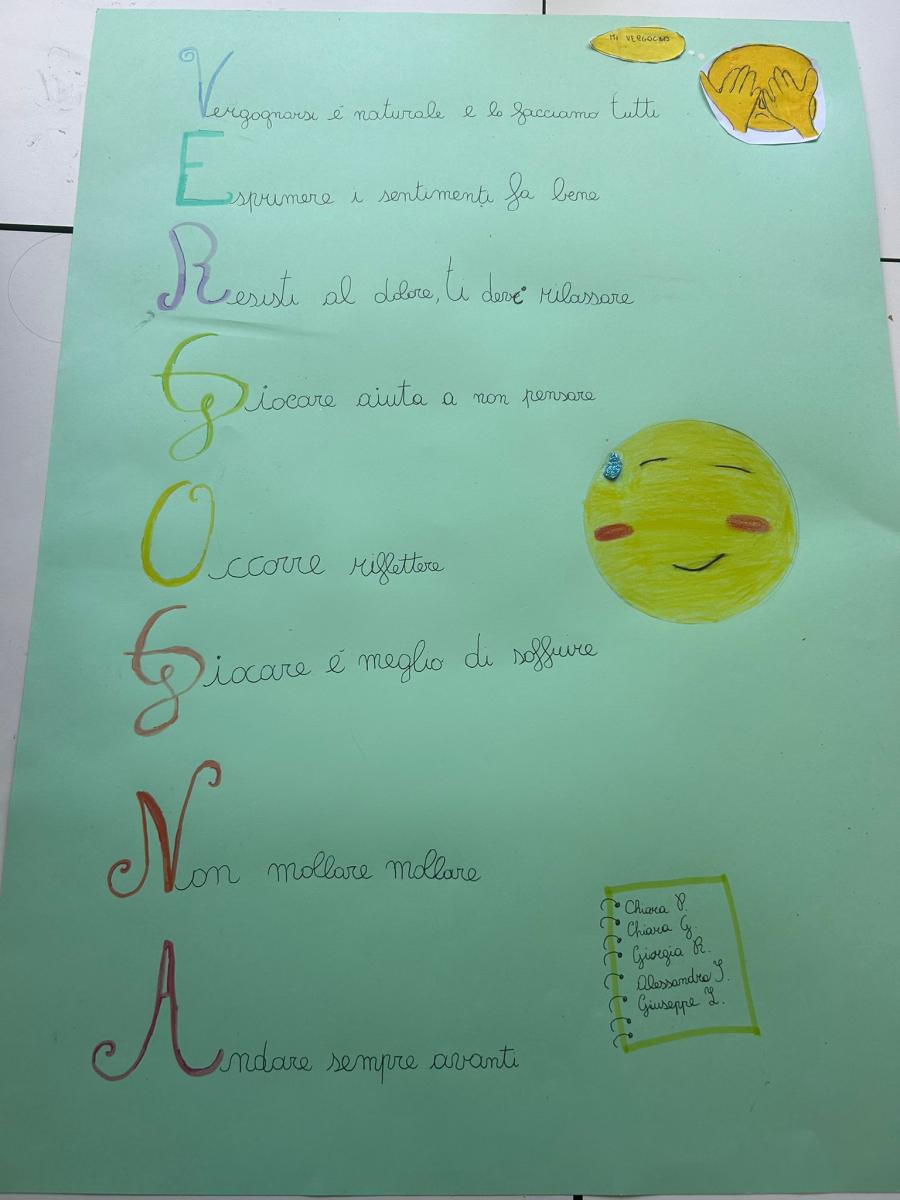 MI VERGOGNO
Vergognarsi é naturale e lo facciamo tutti
Esprimere i sentimenti fa bene
Resisti al dolore, ti deve rilassare
Giocare aiuta a non pensare
Occorre riflettere
Giocare é meglio di soffrire
Non mollare mollare
Andare sempre avanti
Chiara P.
Chiara G.
Giorgia R.
Alessandra I.
Giuseppe L.